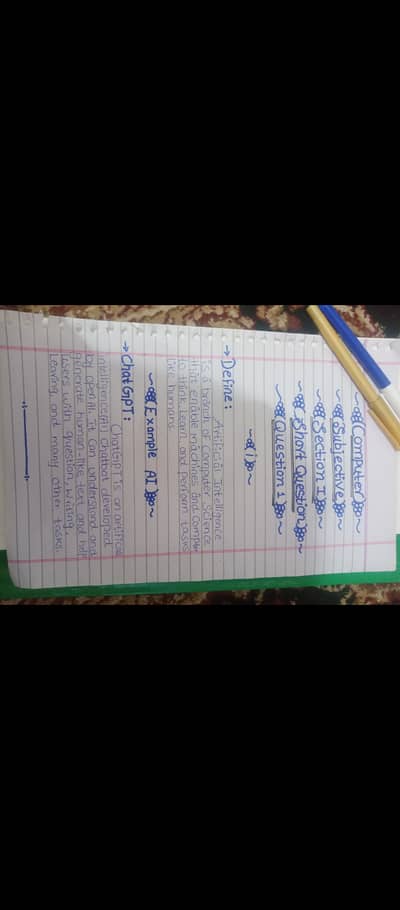 Computer
Subjective
Section I
Short Question
Question 1
(i)
→ Define:
Artificial Intelligence
is a branch of Computer Science
that enable machines and
to think learn and perform tasks
like humans.
Example AI
→ ChatGPT:
ChatGPT is an artificial
intelligence (AI) chatbot developed
by openAI. it can understand and
generate human-like text and help
users with question, writing
learing and many other tasks.